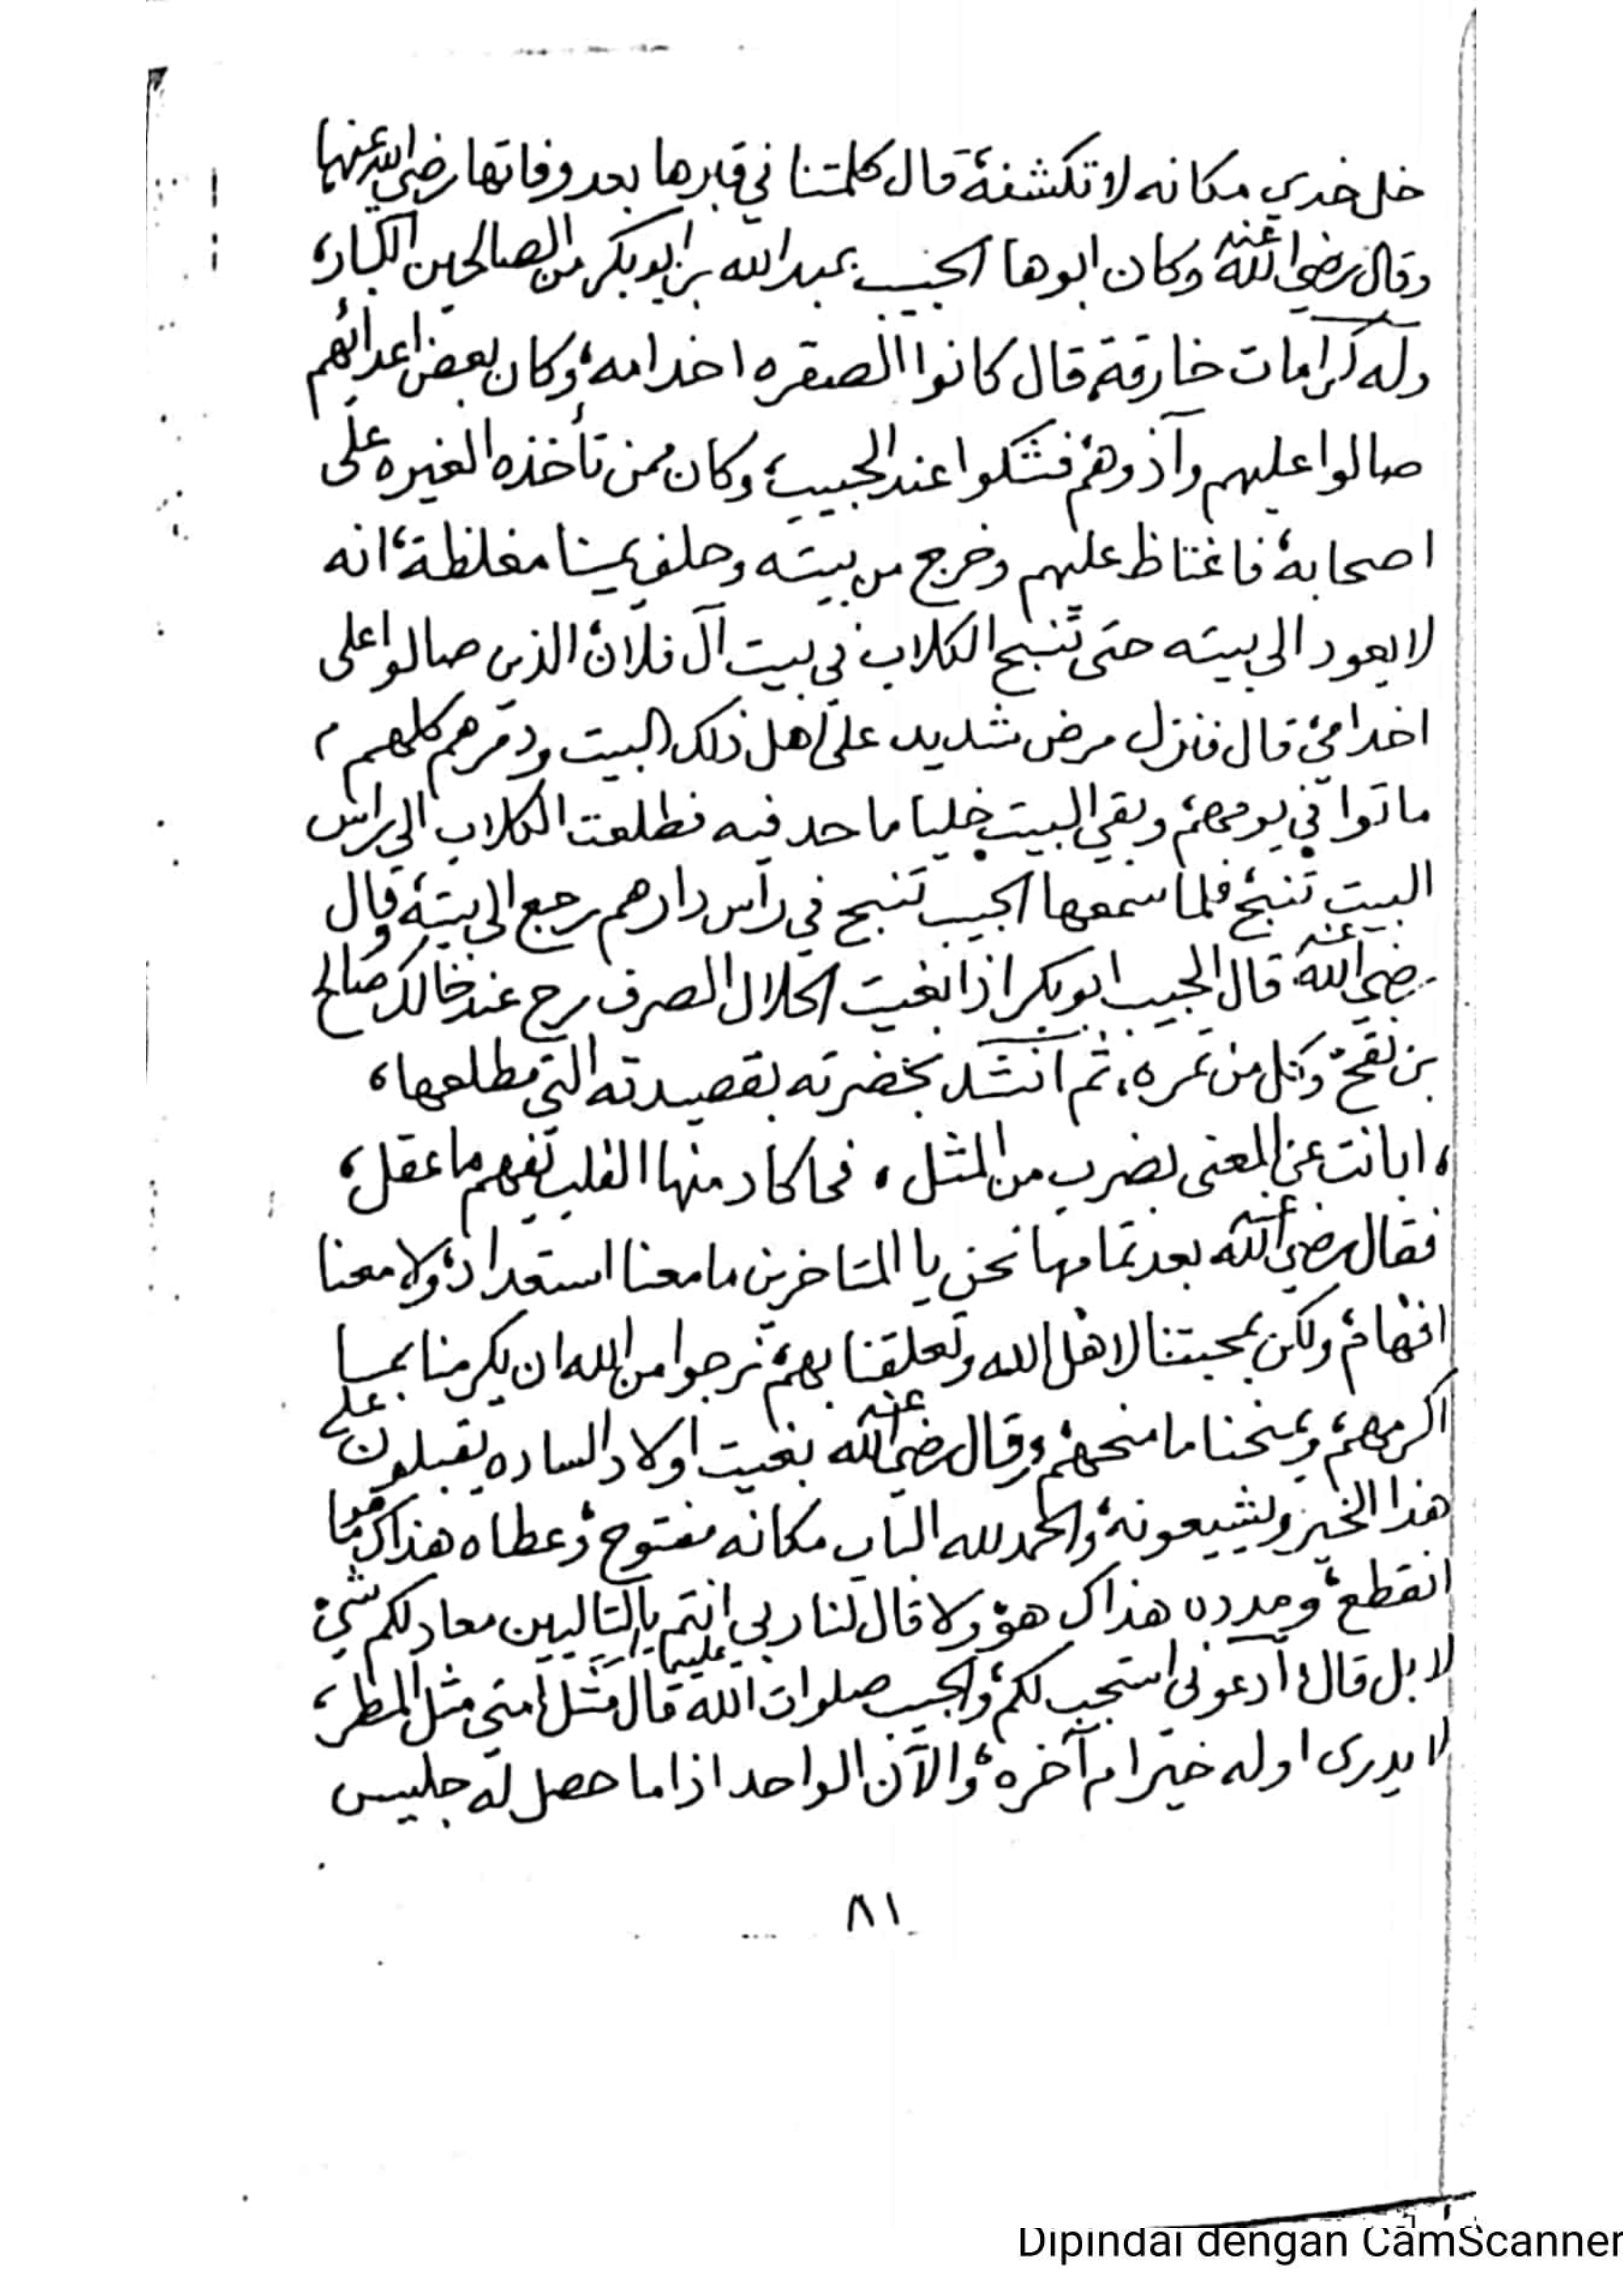 خل خدي مكانه لا تكشفه، قال كلمتنا في قبرها بعد وفاتها رضي الله عنها
وقال رضي الله عنه وكان ابوها الحبيب عبدالله بن ابوبكر من الصالحين الكبار،
وله كرامات خارقة، قال كانوا الصقره اخدامه، وكان بعض اعدائهم
صالوا عليهم وآذوهم، فشكوا عند الحبيب، وكان ممن تأخذه الغيره على
اصحابه، فاغتاظ عليهم وخرج من بيته وحلف يمينا مغلظة، انه
لا يعود الى بيته حتى تنبح الكلاب في بيت آل فلان، الذين صالوا على
اخدامي، قال فنزل مرض شديد على اهل ذلك البيت ودمرهم كلهم م
ماتوا في يومهم، وبقي البيت خليا ما حد فيه فطلعت الكلاب الى راس
البيت تنبح، فلما سمعها الحبيب تنبح في رأس دارهم رجع الى بيته، وقال
رضي الله عنه، قال الحبيب ابوبكر اذا بغيت الحلال الصرف رح عند خالك صالح
بن نقح وكل من تمره، ثم انشد بحضرته بقصيدته التي مطلعها،
، ابانت عن المعنى بضرب من المثل ، فما كاد منها القلب تفهم ما عقل ،
فقال رضي الله عنه بعد تمامها نحن يا المتاخرين ما معنا استعداد، ولا معنا
افهام، ولكن بمحبتنا لاهل الله وتعلقنا بهم، نرجوا من الله ان يكرمنا بما
اكرمهم، ويمنحنا ما منحهم، وقال رضي الله عنه بغيت اولاد الساده يقبلون على
هذا الخير ويشيعونه، والحمد لله الباب مكانه مفتوح، وعطاه هذاك هو ما
انقطع، ومدده هذاك هو، ولا قال لنا ربي انتم يا التاليين معاد لكم شيء
لا بل قال، ادعوني استجب لكم، والحبيب صلوات الله عليه قال مثل امتي مثل المطر،
لا يدرى اوله خير ام آخره، والآن الواحد اذا ما حصل له جليس
٨١
Dipindai dengan CamScanner